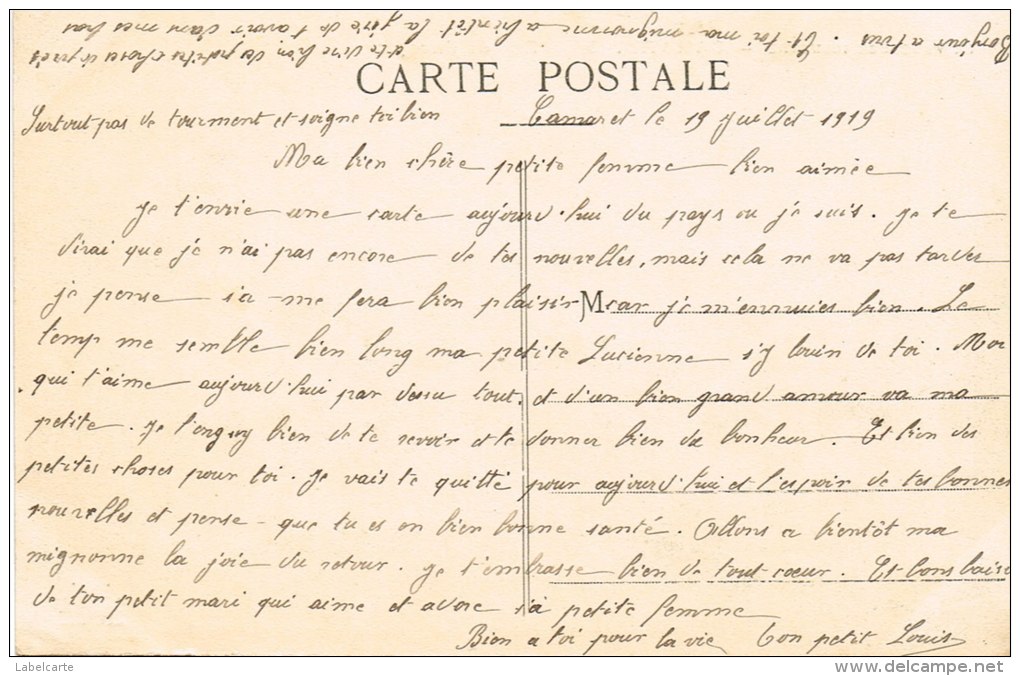 Bonjour a tous. Et toi ma mignonne a bientôt la joie de t'avoir dans mes bras
et te dire bien de petites choses de près
CARTE POSTALE
Surtout pas de tourment et soigne toi bien
Camaret le 19 Juillet 1919
Ma bien chère petite femme bien aimée
Je t'envoie une carte aujourd'hui du pays ou je suis. Je te
dirai que je n'ai pas encore de tes nouvelles, mais cela ne va pas tarder
je pense sa me fera bien plaisir M car je m'ennuies bien. Le
temp me semble bien long ma petite Lucienne s'y louin de toi. Moi
qui t'aime aujourd'hui par dessu tout, et d'un bien grand amour va ma
petite. Je bien de te revoir et te donner bien du bonheur. Et bien des
petites choses pour toi. Je vais te quitté pour aujourd'hui et l'espoir de tes bonnes
nouvelles et pense que tu es en bien bonne santé. Allons a bientôt ma
mignonne la joie du retour. Je t'embrasse bien de tout coeur. Et bons baisé
de ton petit mari qui aime et adore sa petite femme
Bien a toi pour la vie Ton petit Louis
Labelcarte
http://www.delcampe.net